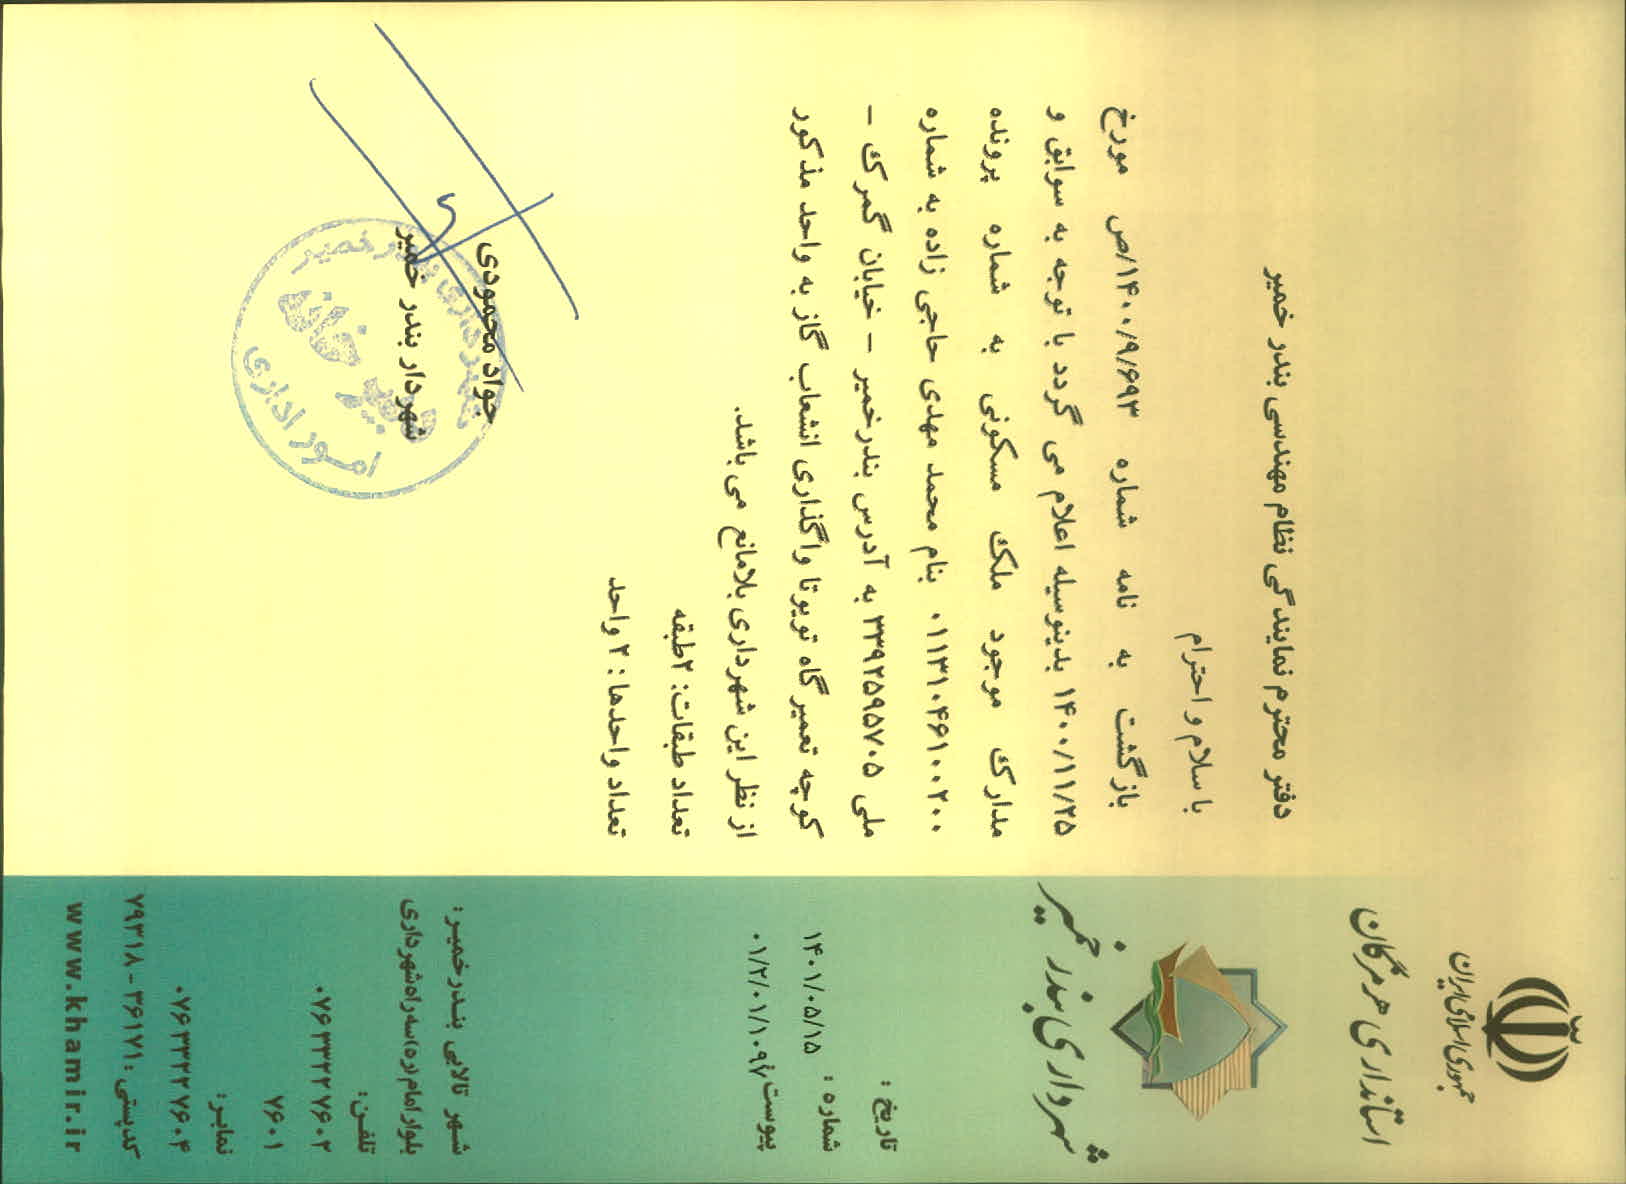 جمهوری اسلامی ایران
استانداری هرمزگان
شهرداری بندر خمیر
تاریخ :
۱۴۰۱/۰۵/۱۵
شماره :
۰۱/۲/۰۱/۱۰۹۷
پیوست :
شهر تالابی بندرخمیر:
بلوار امام (ره) سه راه شهرداری
تلفن:
۰۷۶۳۳۳۲۷۶۰۲
۷۶۰۱
نمابر:
۰۷۶۳۳۳۲۷۶۰۴
کدپستی: ۳۶۱۷۱ - ۷۹۳۱۸
www.khamir.ir
دفتر محترم نمایندگی نظام مهندسی بندر خمیر
با سلام و احترام
بازگشت به نامه شماره ۱۴۰۰/۹/۶۹۳/ص مورخ
۱۴۰۰/۱۱/۲۵ بدینوسیله اعلام می گردد با توجه به سوابق و
مدارک موجود ملک مسکونی به شماره پرونده
۰۱۱۳۱۰۴۶۱۰۰۲۰۰ بنام محمد مهدی حاجی زاده به شماره
ملی ۳۳۹۲۵۹۵۷۰۵ به آدرس بندرخمیر – خیابان گمرک –
کوچه تعمیرگاه تویوتا واگذاری انشعاب گاز به واحد مذکور
از نظر این شهرداری بلامانع می باشد.
تعداد طبقات: ۲طبقه
تعداد واحدها : ۲ واحد
جواد محمودی
شهردار بندر خمیر
شهرداری بندر خمیر
دبیرخانه
امور اداری